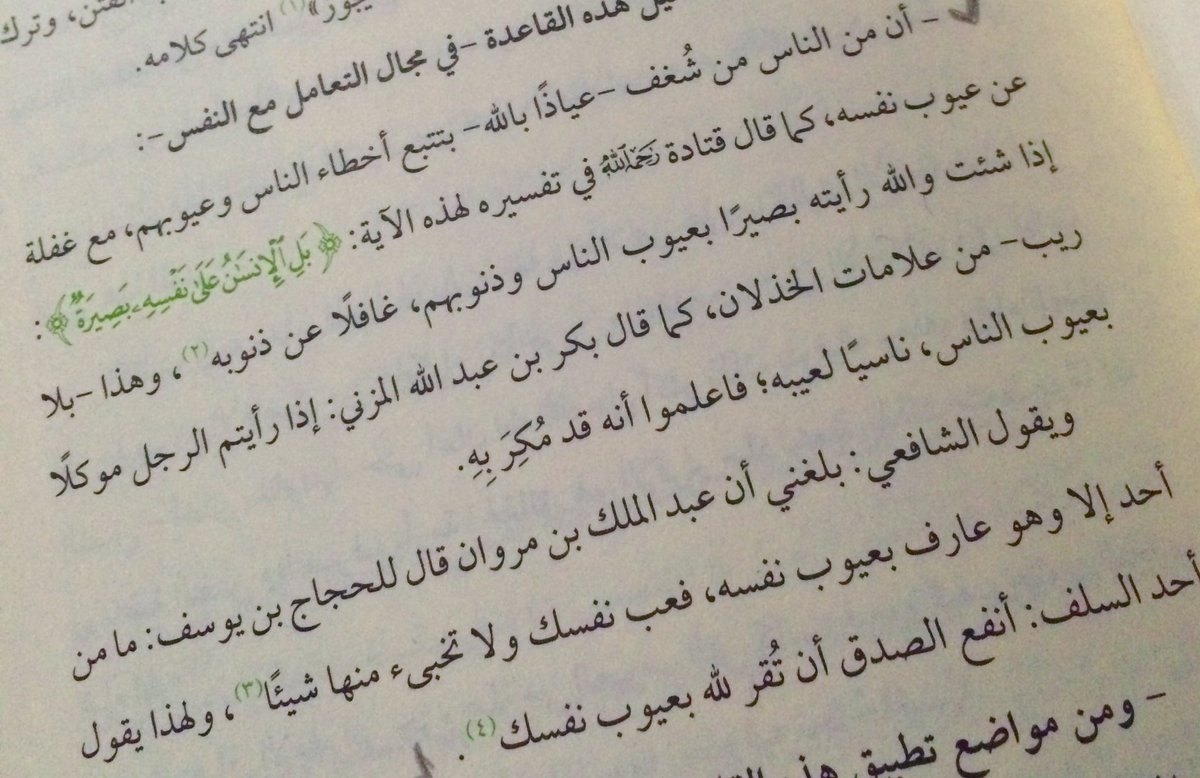 الفتن، وترك
يجور»(١) انتهى كلامه.
هذه القاعدة -في مجال التعامل مع النفس-:
- أن من الناس من شُغف -عياذًا بالله- بتتبع أخطاء الناس وعيوبهم، مع غفلة
عن عيوب نفسه، كما قال قتادة رَحِمَهُ اللَّهُ في تفسيره لهذه الآية: ﴿بَلِ ٱلْإِنسَٰنُ عَلَىٰ نَفْسِهِۦ بَصِيرَةٌ﴾:
إذا شئت والله رأيته بصيرًا بعيوب الناس وذنوبهم، غافلًا عن ذنوبه(٢)، وهذا -بلا
ريب- من علامات الخذلان، كما قال بكر بن عبد الله المزني: إذا رأيتم الرجل موكلًا
بعيوب الناس، ناسيًا لعيبه؛ فاعلموا أنه قد مُكِرَ بِهِ.
ويقول الشافعي: بلغني أن عبد الملك بن مروان قال للحجاج بن يوسف: ما من
أحد إلا وهو عارف بعيوب نفسه، فعب نفسك ولا تخبىء منها شيئًا(٣)، ولهذا يقول
أحد السلف: أنفع الصدق أن تُقر لله بعيوب نفسك(٤).
- ومن مواضع تطبيق هذه